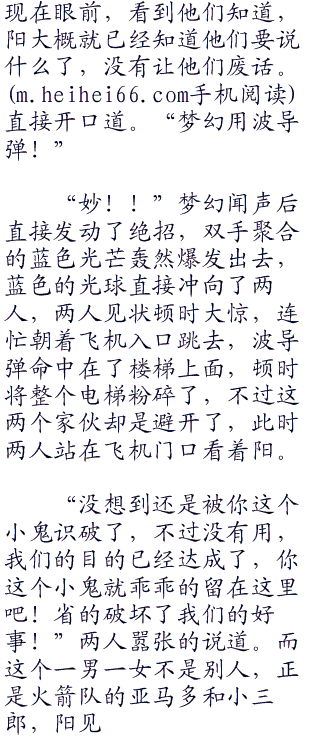 现在眼前，看到他们知道，
阳大概就已经知道他们要说
什么了，没有让他们废话。
(m.heihei66.com手机阅读)
直接开口道。“梦幻用波导
弹！”
“妙！！”梦幻闻声后
直接发动了绝招，双手聚合
的蓝色光芒轰然爆发出去，
蓝色的光球直接冲向了两
人，两人见状顿时大惊，连
忙朝着飞机入口跳去，波导
弹命中在了楼梯上面，顿时
将整个电梯粉碎了，不过这
两个家伙却是避开了，此时
两人站在飞机门口看着阳。
“没想到还是被你这个
小鬼识破了，不过没有用，
我们的目的已经达成了，你
这个小鬼就乖乖的留在这里
吧！省的破坏了我们的好
事！”两人嚣张的说道。而
这个一男一女不是别人，正
是火箭队的亚马多和小三
郎，阳见